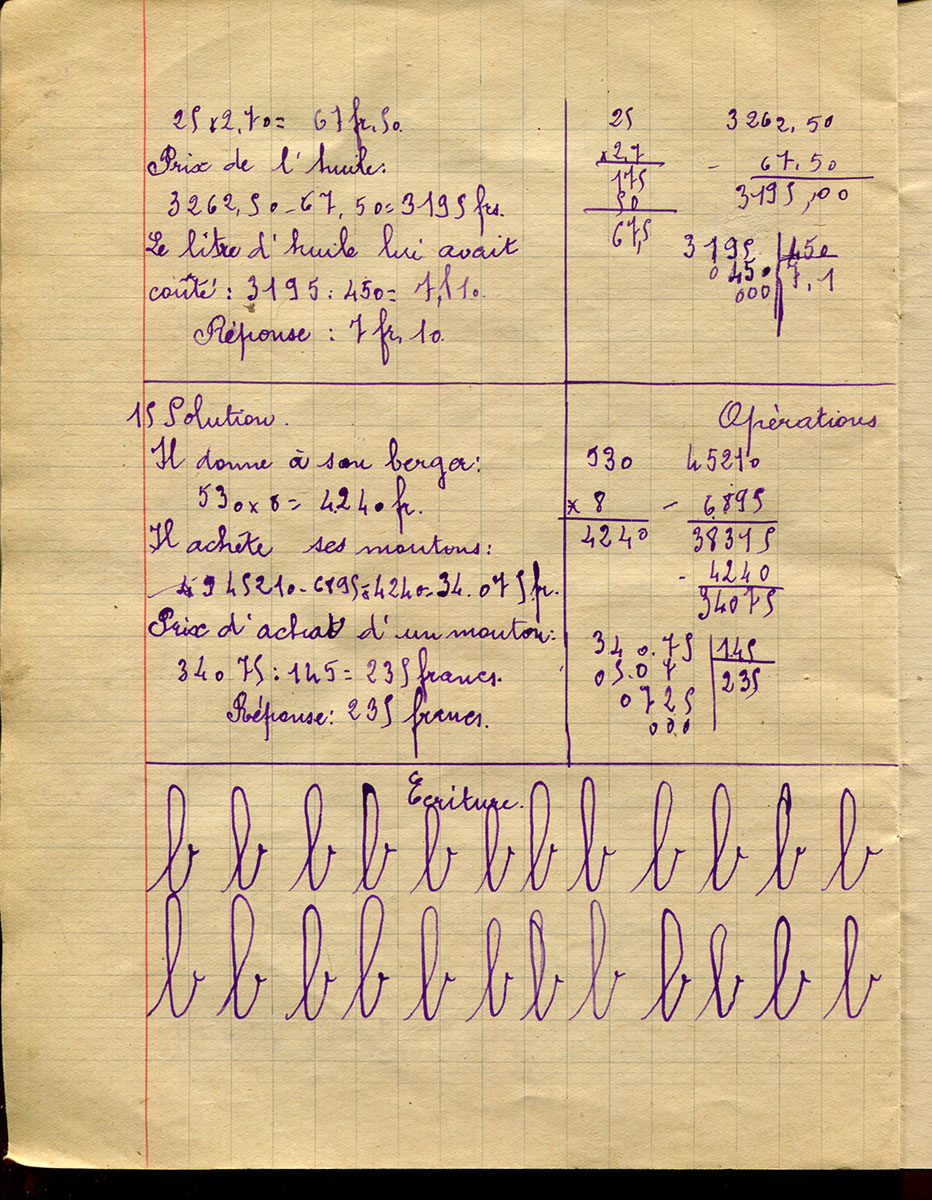 25 x 2,70 = 67 fr, 50.
Prix de l'huile:
3262,50 - 67,50 = 3195 frs.
Le litre d'huile lui avait
coûté: 3195 : 450 = 7,f10.
Réponse : 7 fr, 10.
25
x 2,7
175
50
67,5
3262,50
- 67,50
3195,00
3195 450
0 450 7,1
000
15 Solution.
Il donne à son berger:
530 x 8 = 4240 fr.
Il achète ses moutons:
45210 - 6895 = 4240 = 34.075 fr.
Prix d'achat d'un mouton:
34075 : 145 = 235 francs.
Réponse: 235 francs.
Opérations
530
x 8
4240
45210
- 6895
38315
- 4240
34075
340.75 145
05.07 235
0725
000
Ecriture.
b b b b b b b b b b b b
b b b b b b b b b b b b